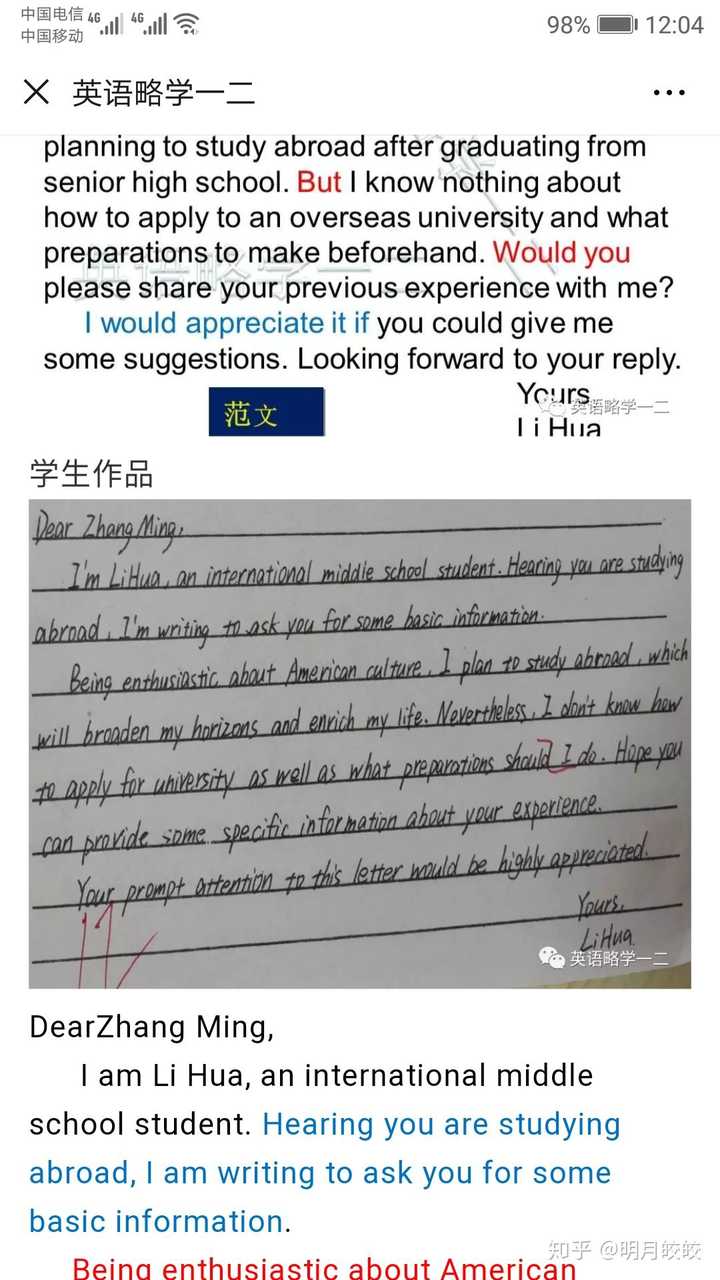 中国电信 4G 4G 98% 12:04
中国移动
英语略学一二
planning to study abroad after graduating from
senior high school. But I know nothing about
how to apply to an overseas university and what
preparations to make beforehand. Would you
please share your previous experience with me?
I would appreciate it if you could give me
some suggestions. Looking forward to your reply.
范文
Yours
英语略学一二
Li Hua
学生作品
Dear Zhang Ming,
I'm LiHua, an international middle school student. Hearing you are studying
abroad, I'm writing to ask you for some basic information.
Being enthusiastic about American culture, I plan to study abroad, which
will broaden my horizons and enrich my life. Nevertheless, I don't know how
to apply for university as well as what preparations should I do. Hope you
can provide some specific information about your experience.
Your prompt attention to this letter would be highly appreciated.
Yours,
LiHua
英语略学一二
DearZhang Ming,
I am Li Hua, an international middle
school student. Hearing you are studying
abroad, I am writing to ask you for some
basic information.
知乎 @明月皎皎
Being enthusiastic about American